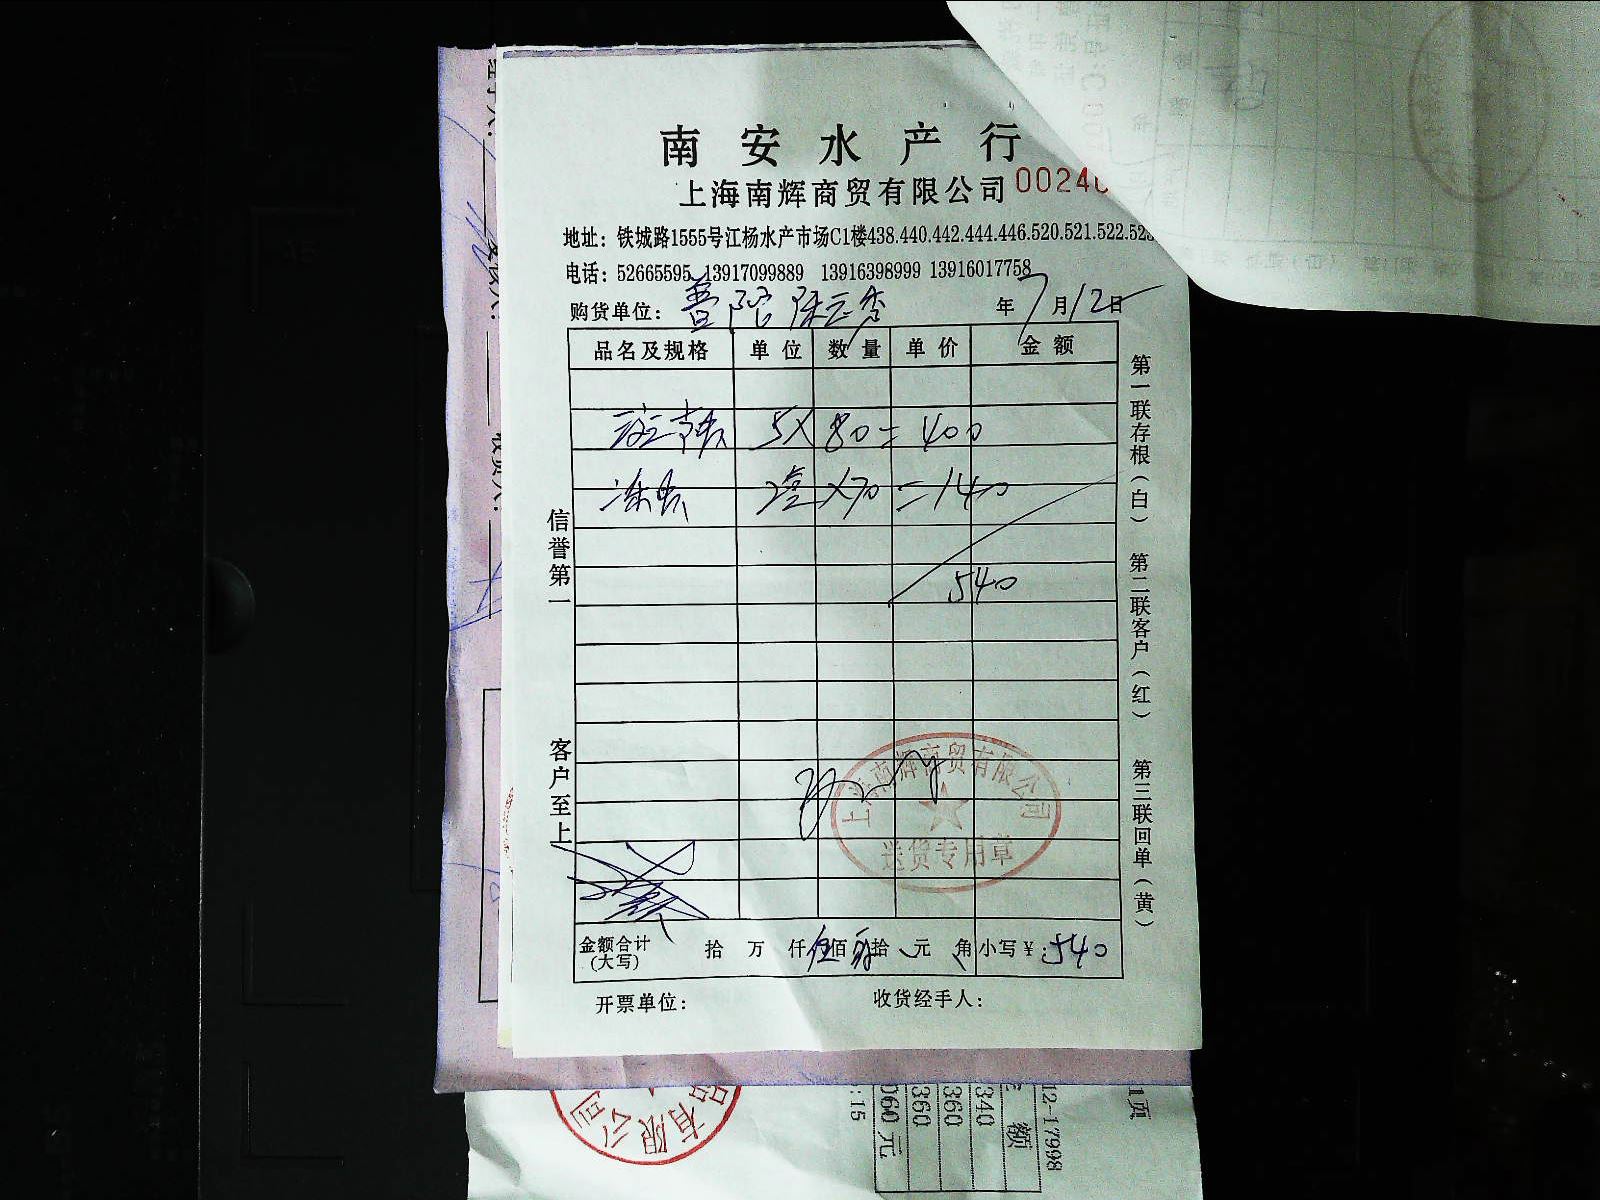 南安水产行
上海南辉商贸有限公司 00240
地址：铁城路1555号江杨水产市场C1楼438.440.442.444.446.520.521.522.523
电话：52665595 13917099889 13916398999 13916017758
购货单位：普陀 年7月12日
品名及规格 单位 数量 单价 金额
5×80=400
冻虾 2盒×70=140
540
信誉第一
客户至上
第一联存根（白） 第二联客户（红） 第三联回单（黄）
上海南辉商贸有限公司
送货专用章
金额合计(大写) 拾 万 仟伍佰肆拾 元 角 小写￥：540
开票单位： 收货经手人：
经手人：
收货人：
有限公司
1页
12-17998
额
340
360
360
060元
:15